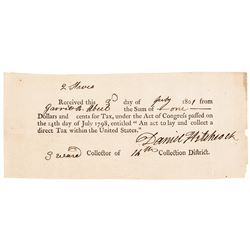 Received this 3d day of July 1801 from
Garrit A. Abeel the Sum of one
Dollars and cents for Tax, under the Act of Congress passed on
the 14th day of July 1798, entitled "An act to lay and collect a
direct Tax within the United States."
Daniel Hitchcock
3 ward Collector of 14th Collection District.